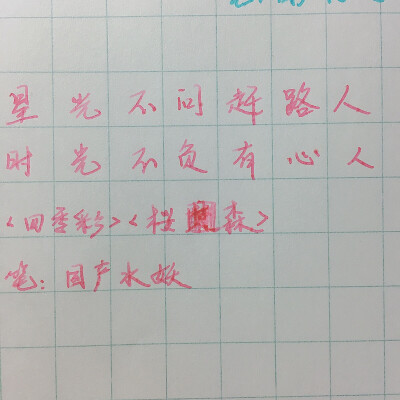 星光不问赶路人
时光不负有心人
<四季彩><桜森>
笔:国产水妖